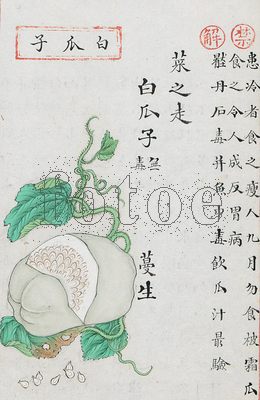 禁
患冷者食之瘦人九月勿食被霜瓜
食之令人成反胃病
解
丹石毒并魚毒飲瓜汁最驗
菜之走
白瓜子 無毒 蔓生
白瓜子
fotoe